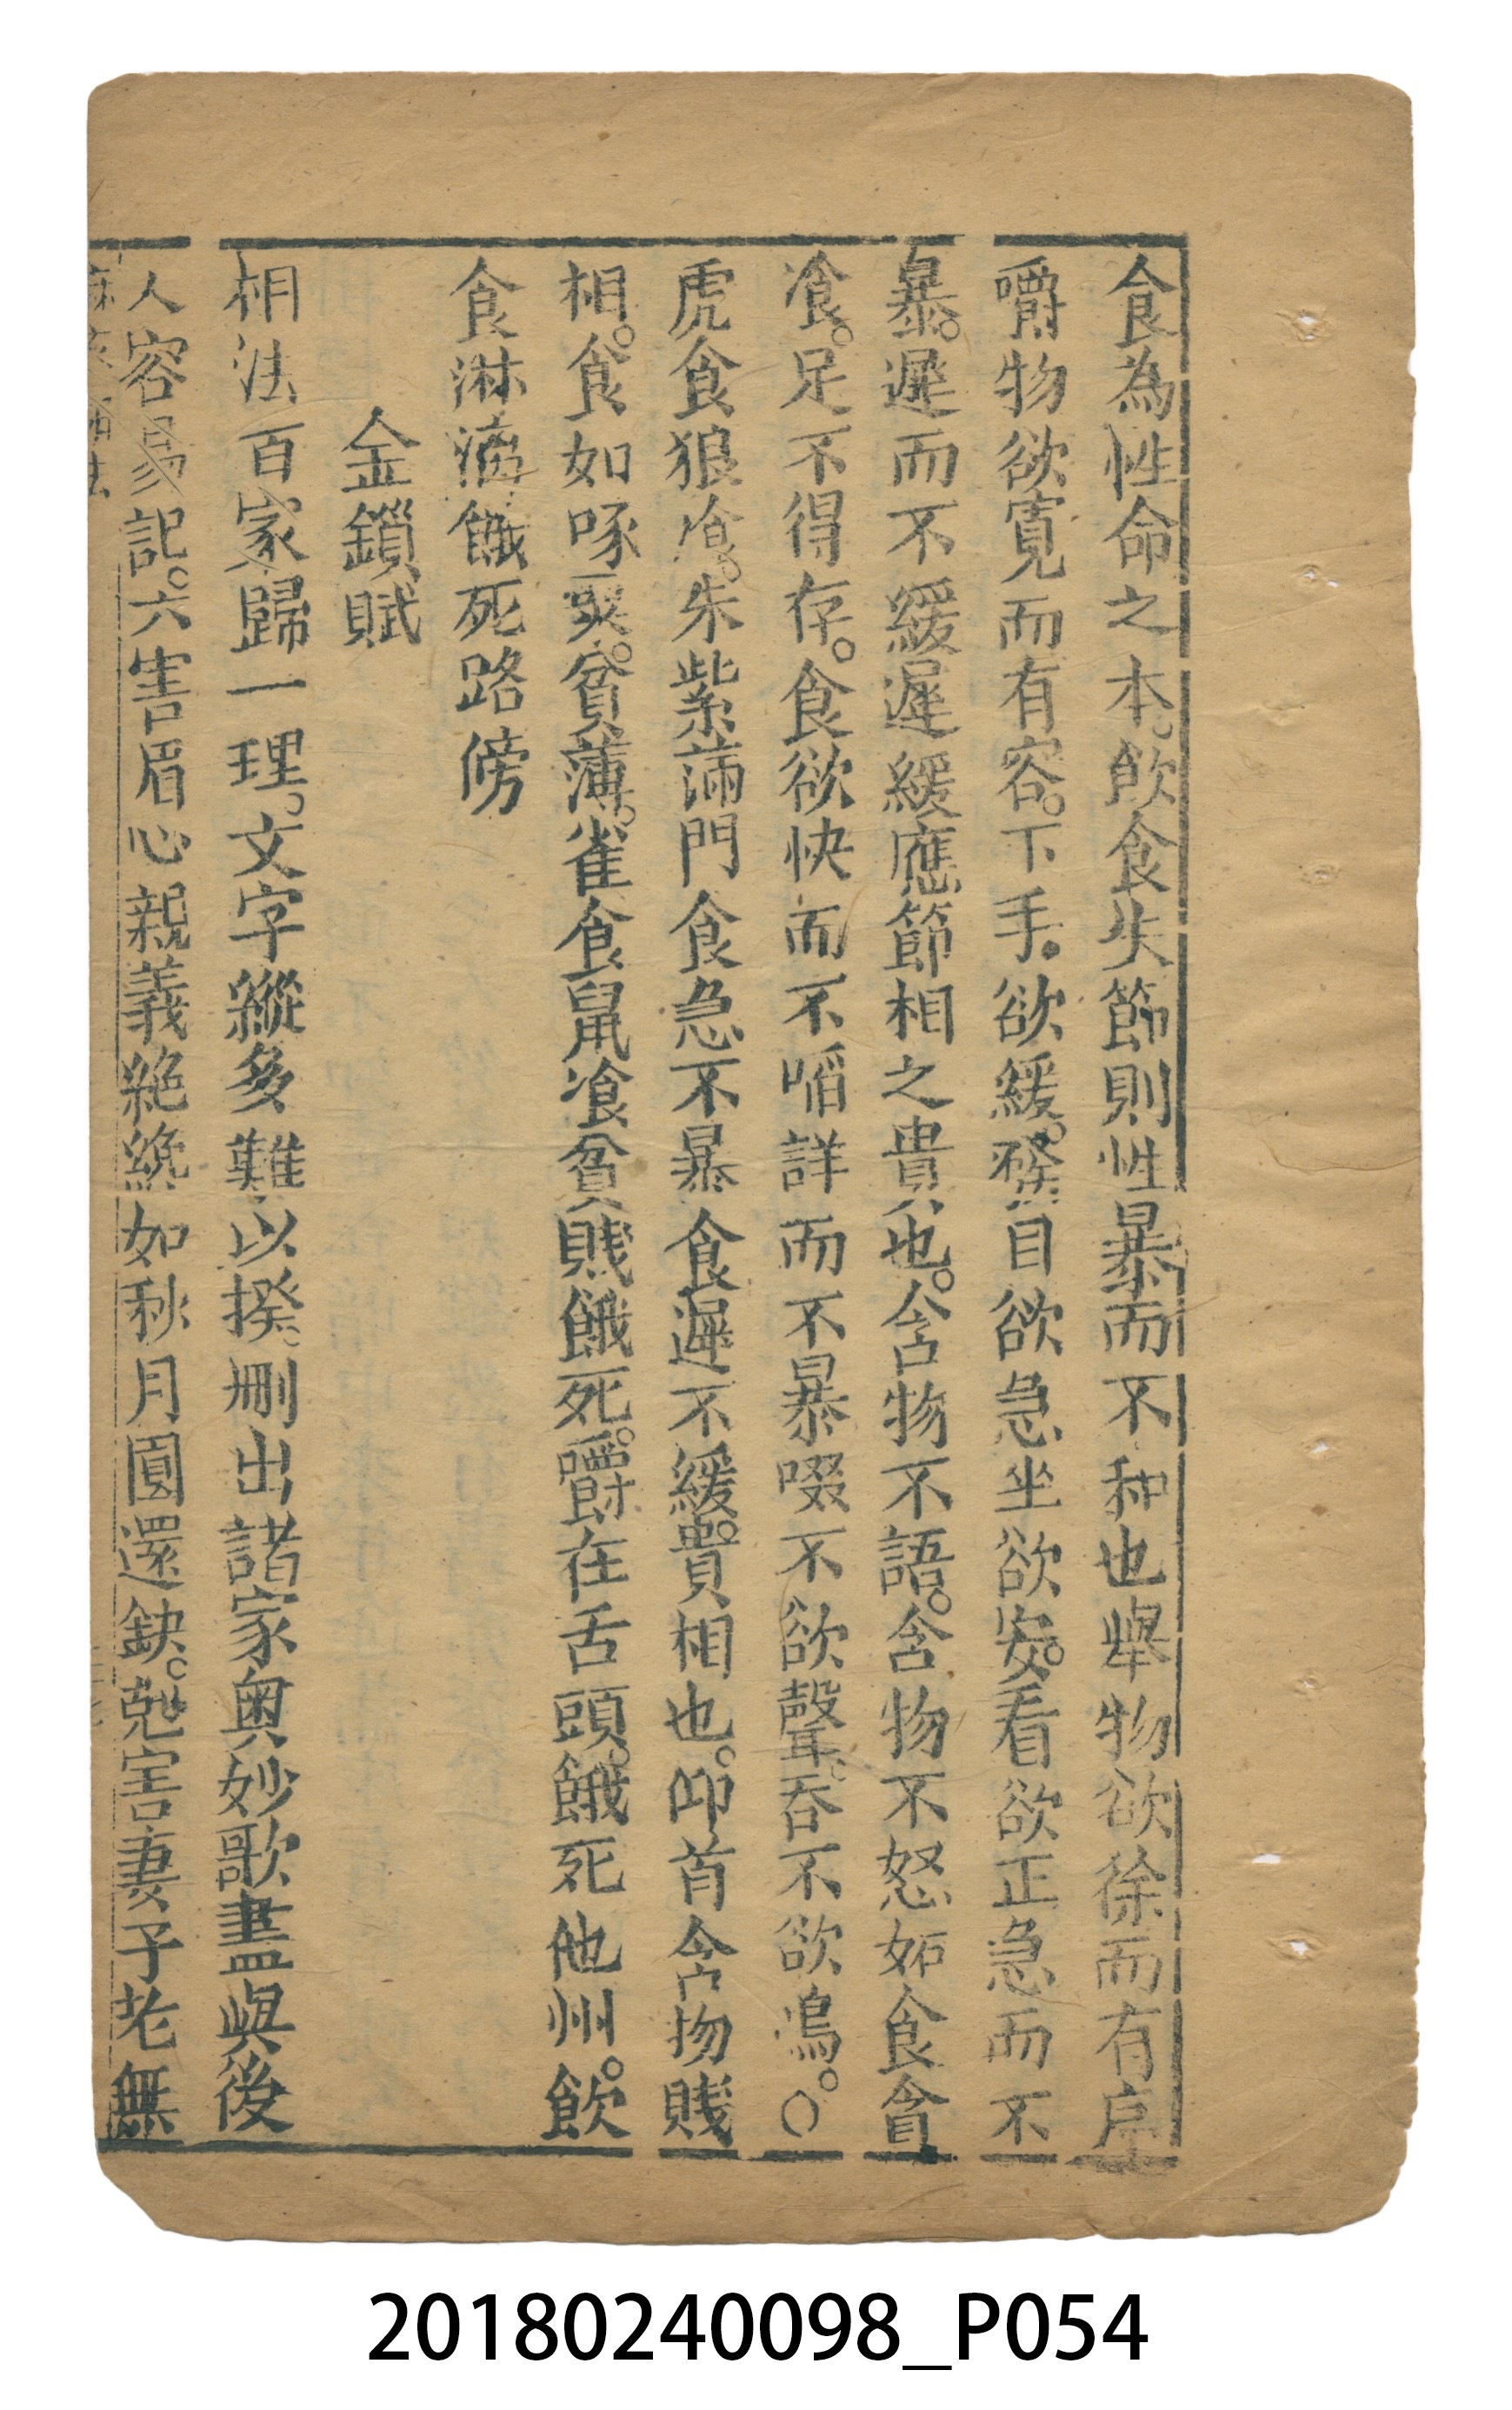 食為性命之本。飲食失節則性暴而不和也。舉物欲徐而有序
嚼物欲寬而有容。下手欲緩。發目欲急坐欲安。看欲正急而不
暴。遲而不緩遲緩應節相之貴也。含物不語。含物不怒妬食貪
飡。足不得存。食欲快而不啗詳而不暴啜不欲聲。吞不欲鳴。〇
虎食狼飡。朱紫滿門食急不暴食遲不緩。貴相也。仰首含物賤
相。食如啄。貧薄。雀食鼠飡貧賤餓死。嚼在舌頭。餓死他州。飲
食淋漓餓死路傍
金鎖賦
相法百家歸一理。文字縱多難以揆。刪出諸家奧妙歌盡與後
人容易記。六害眉心親義絶絶如秋月圓還缺。尅害妻子老無
麻衣相法
20180240098_P054